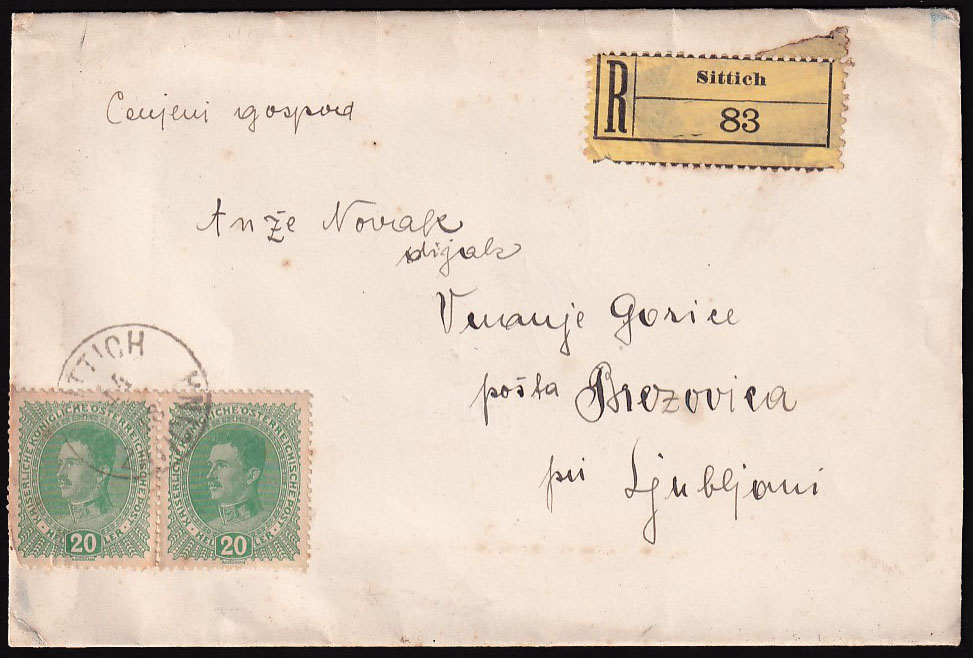 Cenjeni gospod
R
Sittich
83
Anže Novak
dijak
Vnanje Gorice
pošta Brezovica
pri Ljubljani
SITTICH
KAISERLICHE KÖNIGLICHE ÖSTERREICHISCHE POST
HELLER
20
KAISERLICHE KÖNIGLICHE ÖSTERREICHISCHE POST
HELLER
20